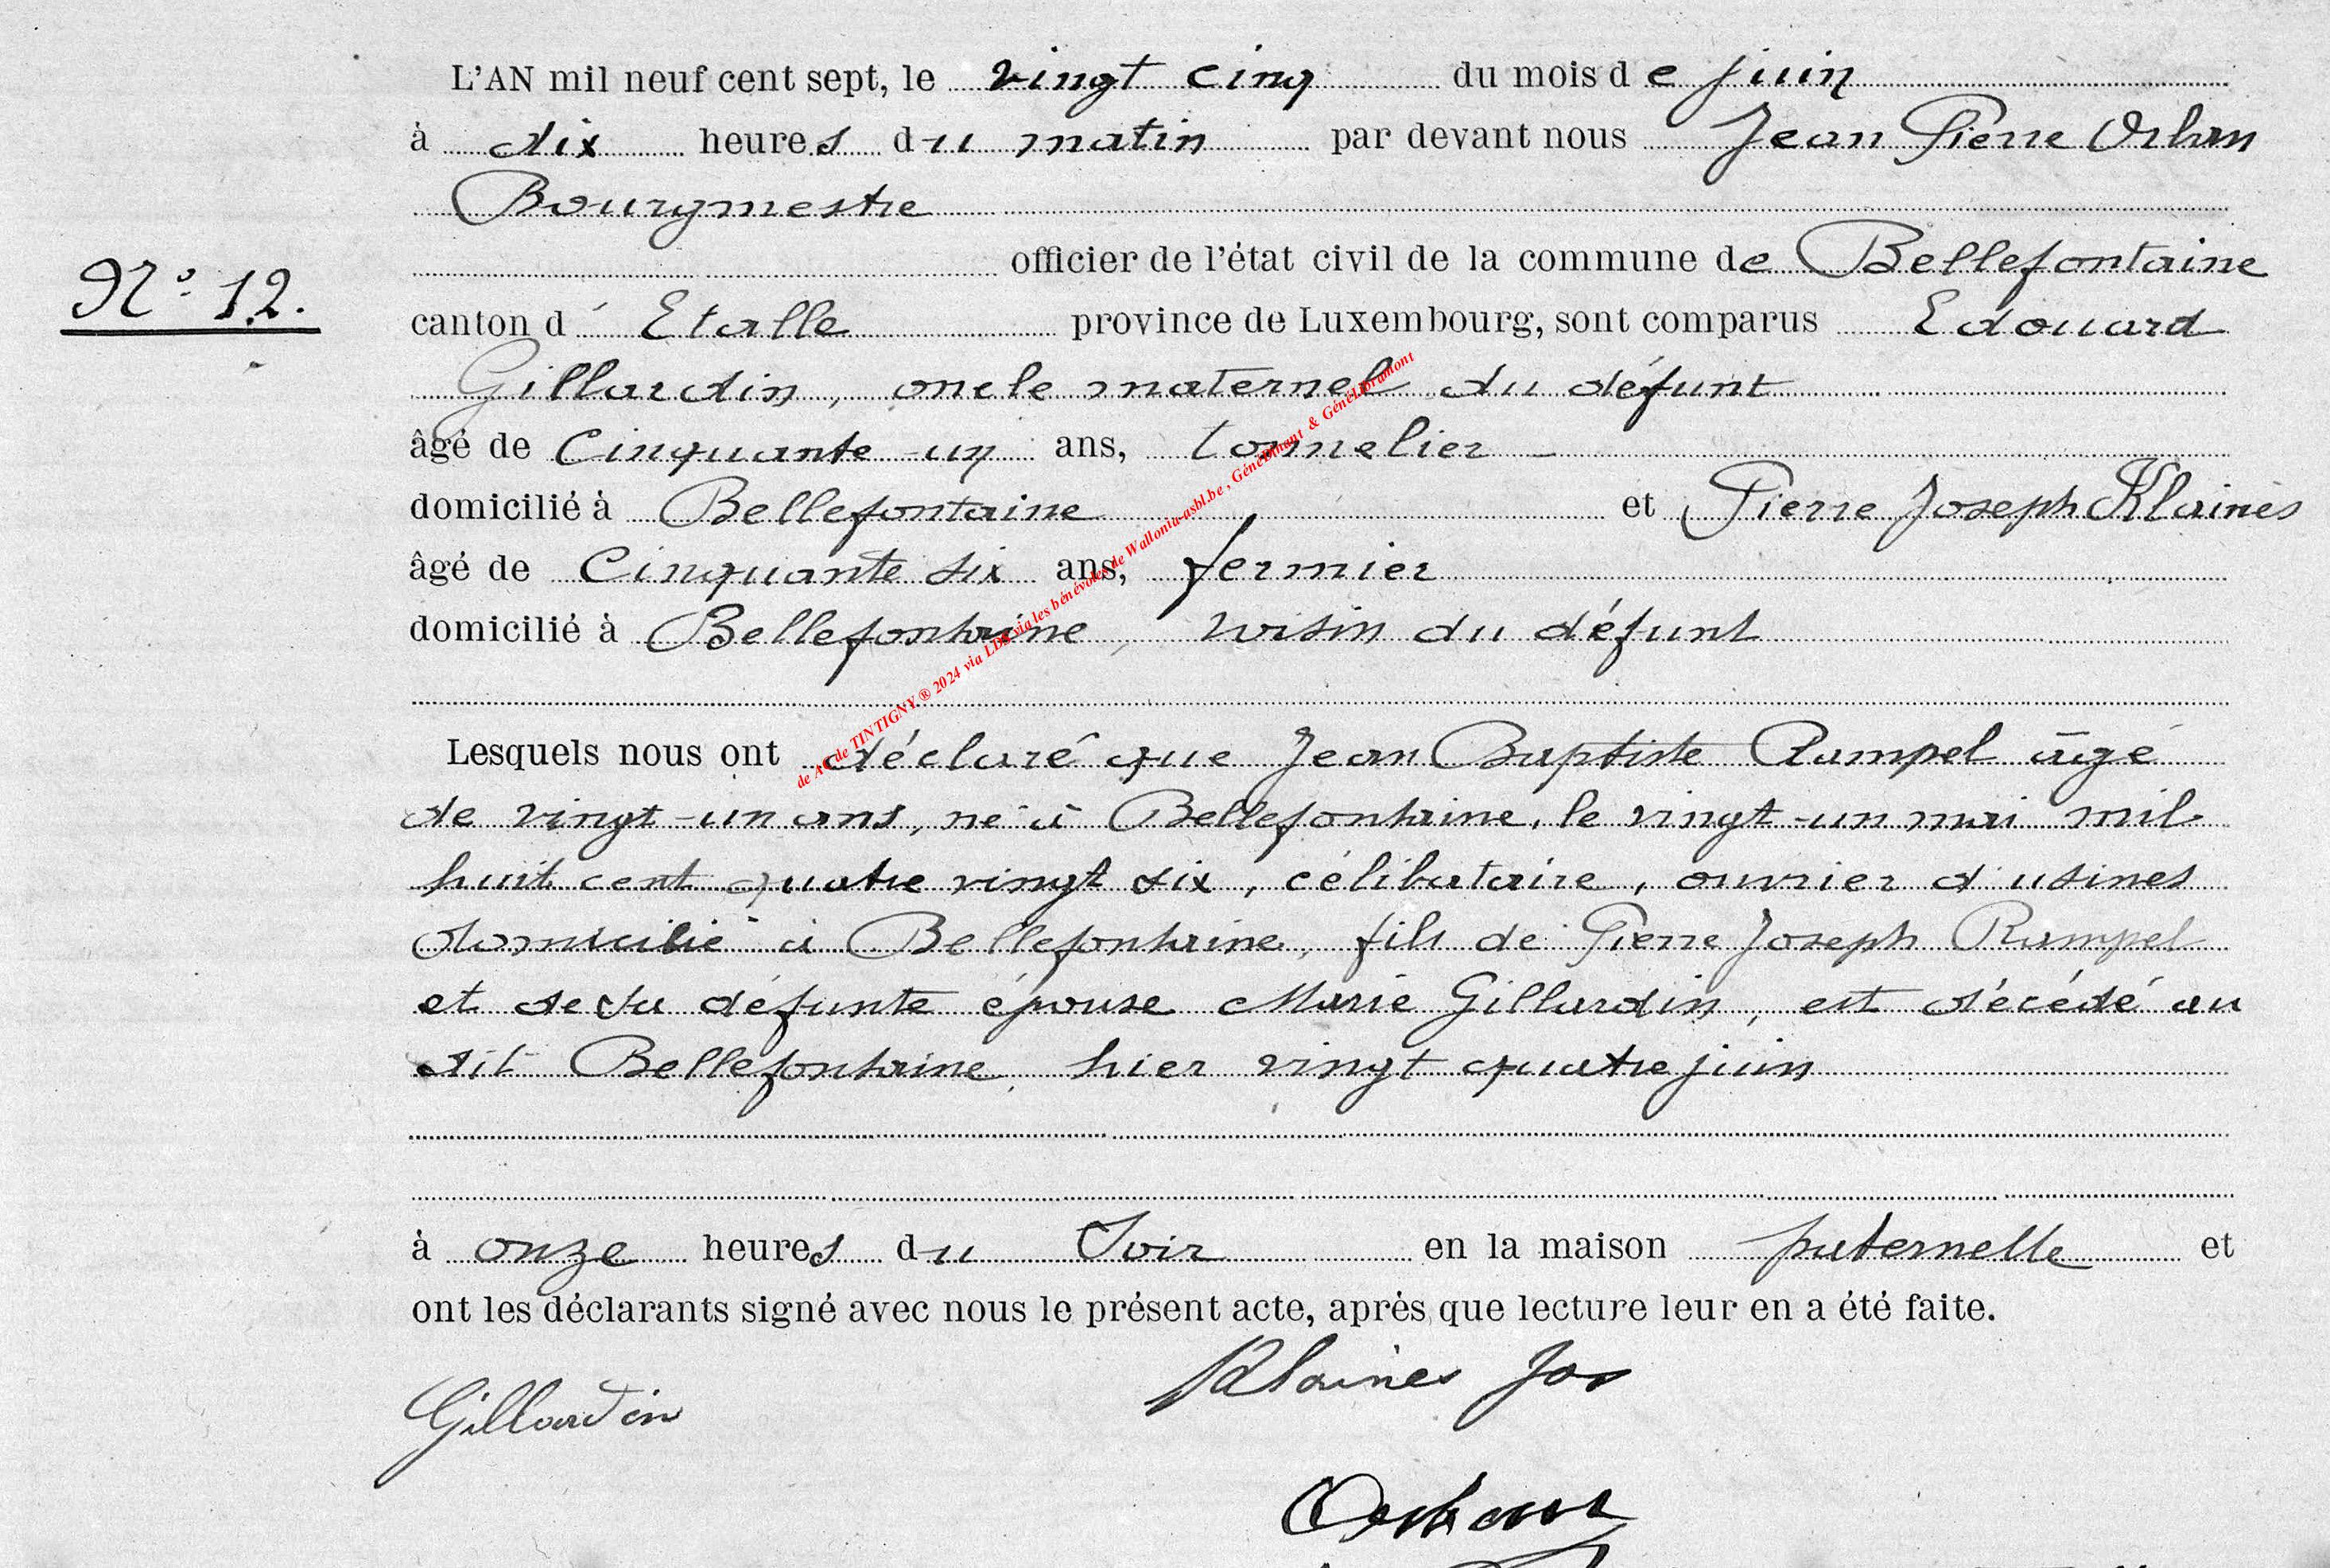 L'AN mil neuf cent sept, le vingt cinq du mois de juin
à dix heures du matin par devant nous Jean Pierre Orban
Bourgmestre
officier de l'état civil de la commune de Bellefontaine
N° 12.
canton d'Etalle province de Luxembourg, sont comparus Edouard
Gillardin, oncle maternel du défunt
âgé de Cinquante-un ans, tonnelier
domicilié à Bellefontaine et Pierre Joseph Klainès
âgé de Cinquante six ans, fermier
domicilié à Bellefontaine, voisin du défunt
de AC de TINTIGNY ® 2024 via LDS via les bénévoles de Wallonia-asbl.be, GénéDinant & GénéLibramont
Lesquels nous ont déclaré que Jean Baptiste Rampel âgé
de vingt-un ans, né à Bellefontaine, le vingt-un mai mil
huit cent quatre vingt six, célibataire, ouvrier d'usines
domicilié à Bellefontaine, fils de Pierre Joseph Rampel
et de sa défunte épouse Marie Gillardin, est décédé au
dit Bellefontaine, hier vingt quatre juin
à onze heures du Soir en la maison paternelle et
ont les déclarants signé avec nous le présent acte, après que lecture leur en a été faite.
Klaines Jos
Gillardin
Orban